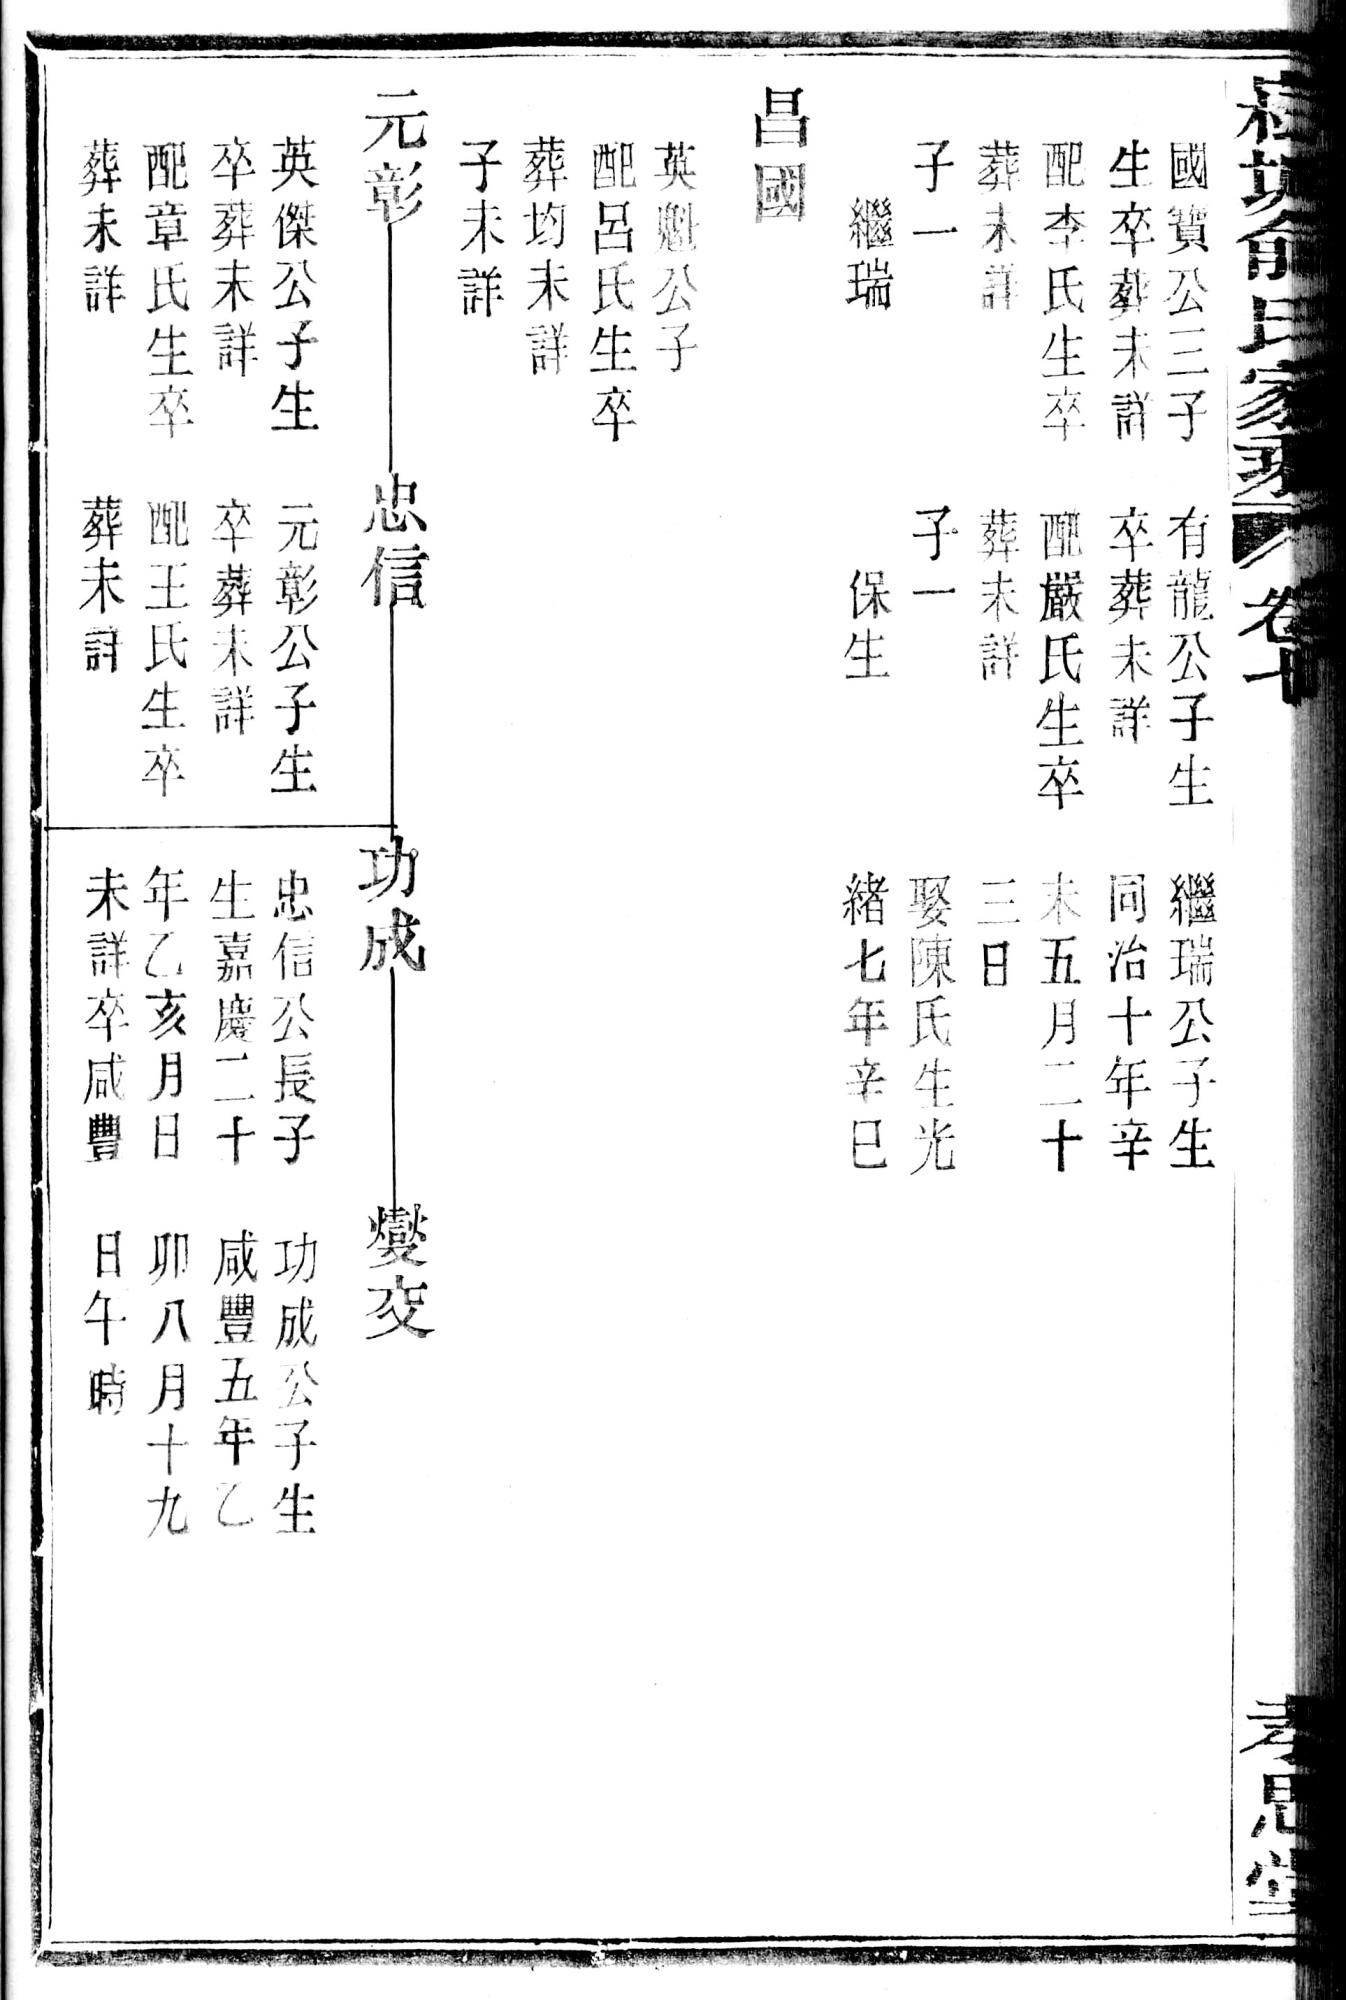 俞氏家乘 卷十
孝思堂
國寶公三子
生卒葬未詳
配李氏生卒
葬未詳
子一
繼瑞
有龍公子生
卒葬未詳
配嚴氏生卒
葬未詳
子一
保生
繼瑞公子生
同治十年辛
未五月二十
三日
娶陳氏生光
緒七年辛巳
昌國
英魁公子
配呂氏生卒
葬均未詳
子未詳
元彰
英傑公子生
卒葬未詳
配章氏生卒
葬未詳
忠信
元彰公子生
卒葬未詳
配王氏生卒
葬未詳
功成
忠信公長子
生嘉慶二十
年乙亥月日
未詳卒咸豐
燮交
功成公子生
咸豐五年乙
卯八月十九
日午時